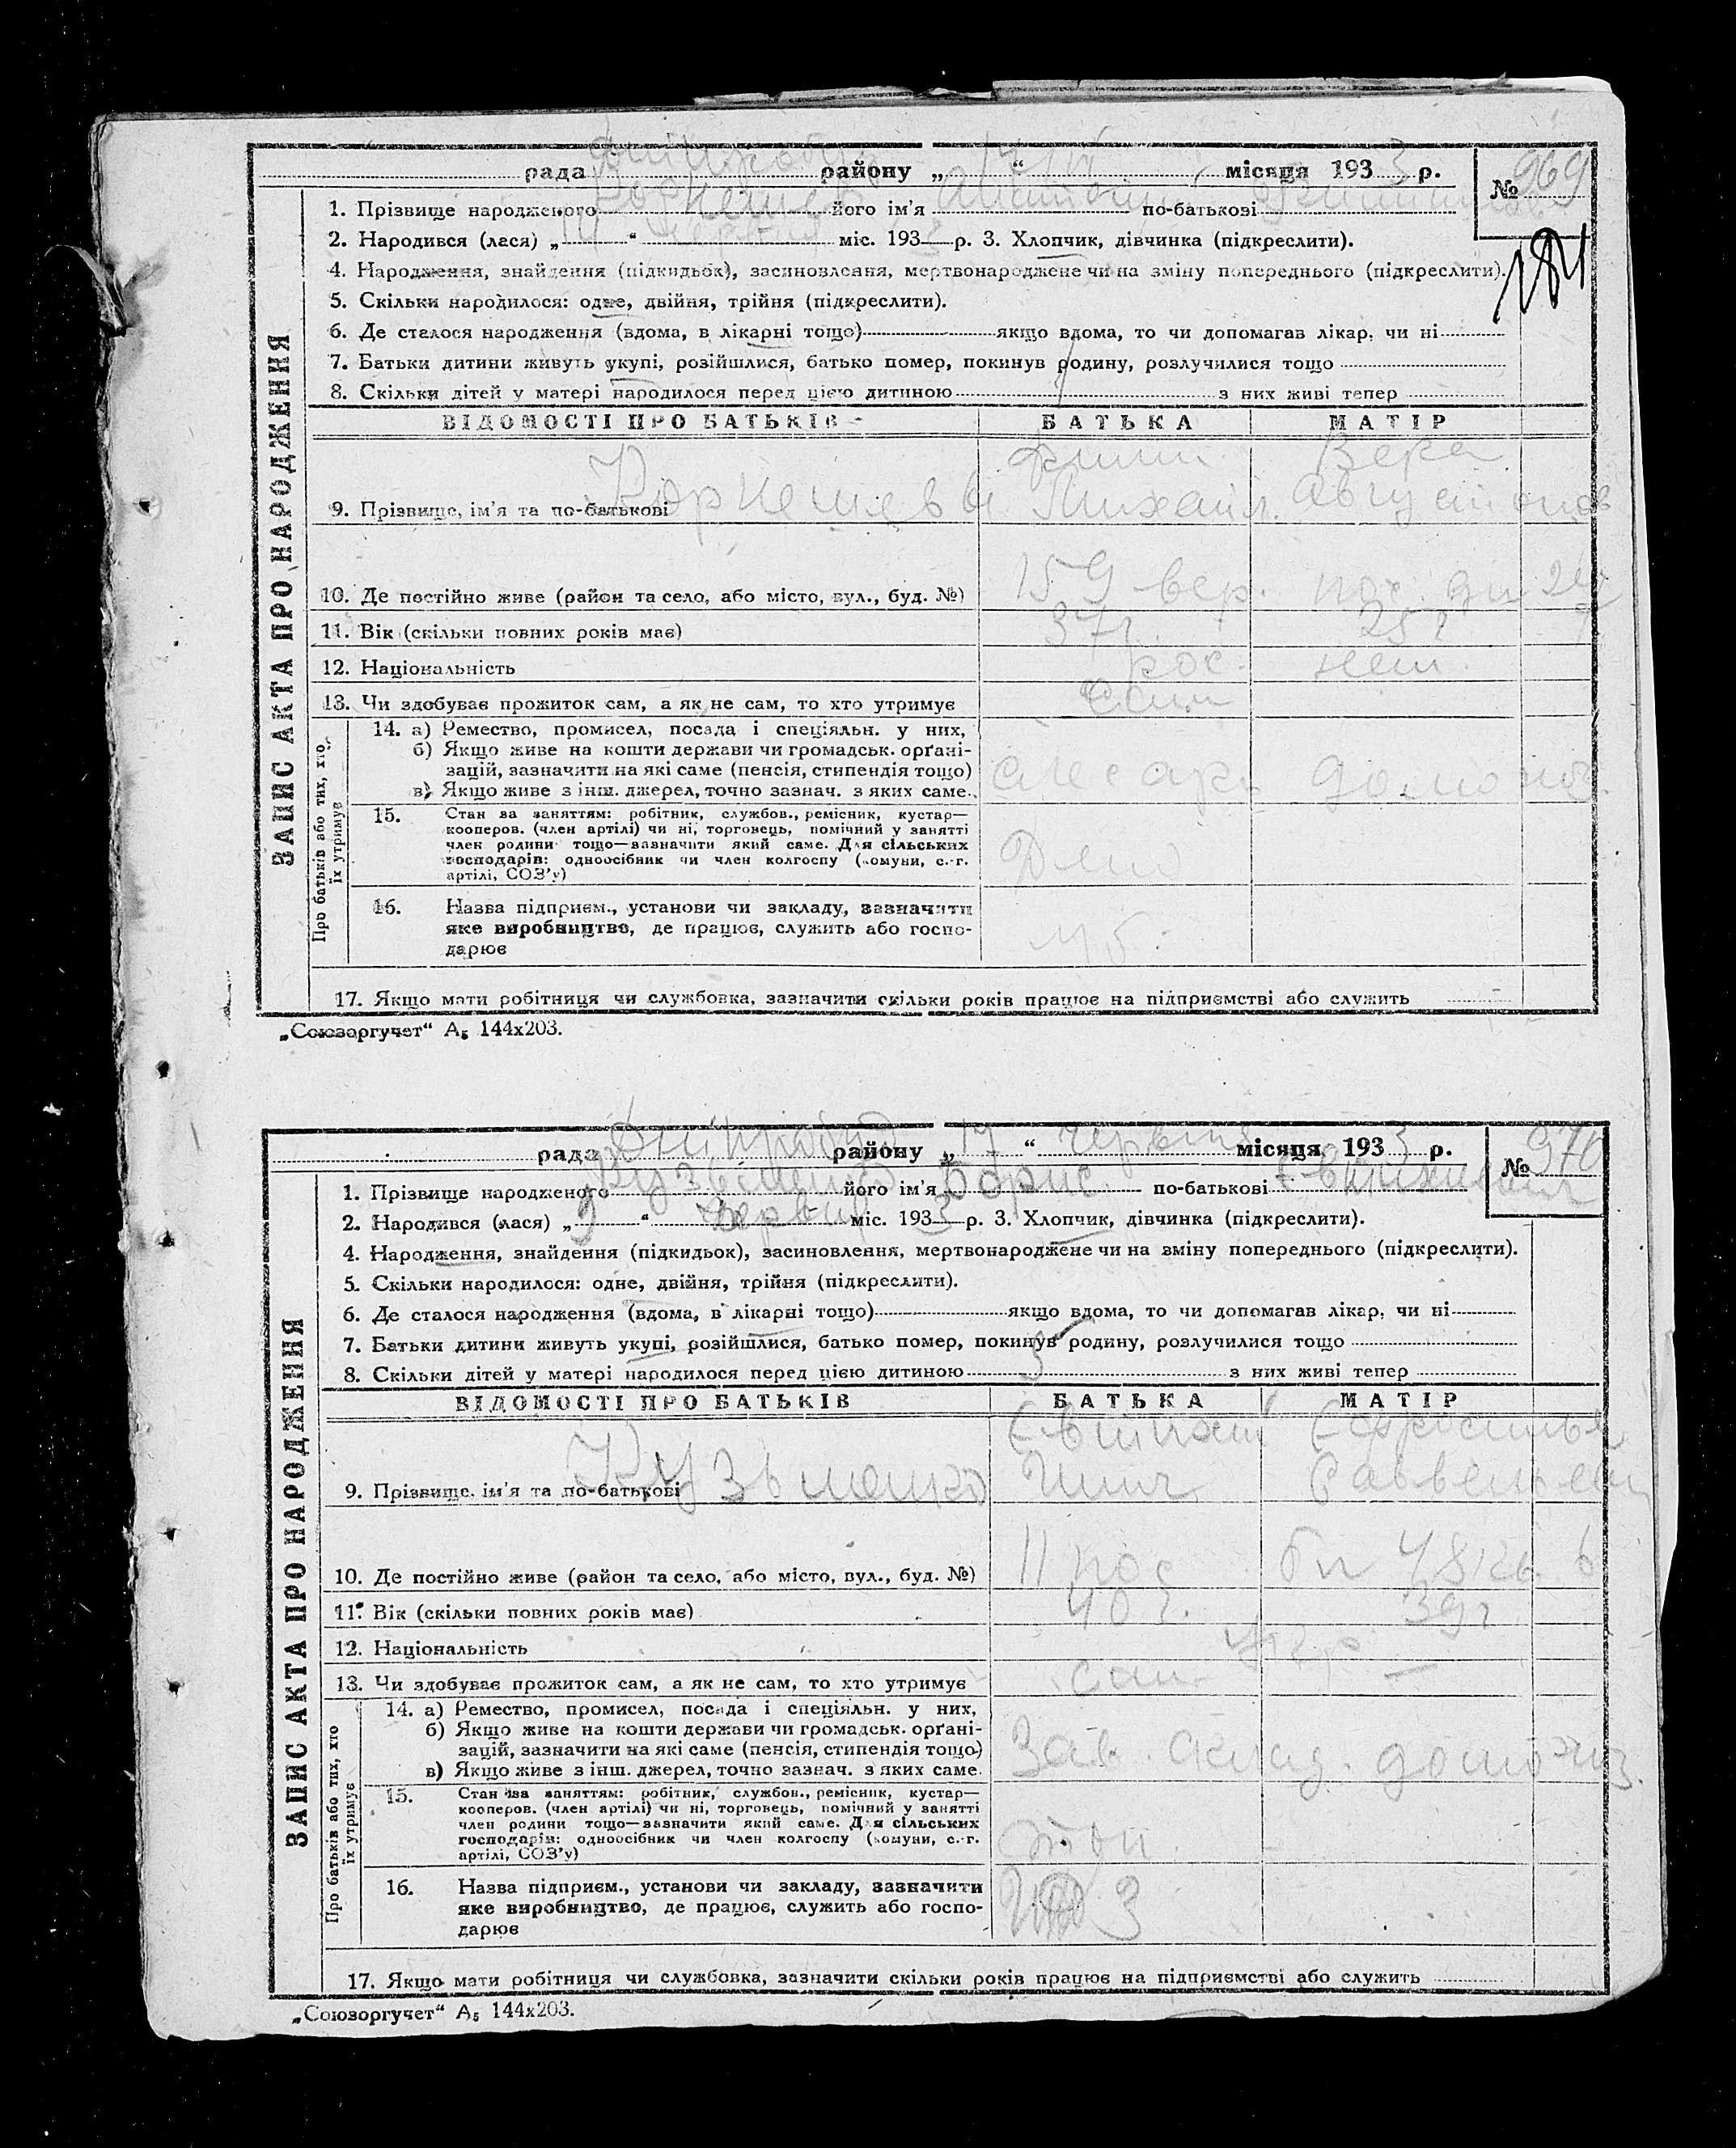 рада Дніпробуд району „17“ місяця 1933 р.
№ 969
1. Прізвище народженого його ім'я по-батькові
184
2. Народився (лася) „ “ міс. 193 р. 3. Хлопчик, дівчинка (підкреслити).
4. Народження, знайдення (підкидьок), засиновлення, мертвонароджене чи на зміну попереднього (підкреслити).
5. Скільки народилося: одне, двійня, трійня (підкреслити).
6. Де сталося народження (вдома, в лікарні тощо) якщо вдома, то чи допомагав лікар, чи ні
7. Батьки дитини живуть укупі, розійшлися, батько помер, покинув родину, розлучилися тощо
8. Скільки дітей у матері народилося перед цією дитиною з них живі тепер
ЗАПИС АКТА ПРО НАРОДЖЕННЯ
ВІДОМОСТІ ПРО БАТЬКІВ БАТЬКА МАТІР
Вера
9. Прізвище, ім'я та по-батькові Михайл.
10. Де постійно живе (район та село, або місто, вул., буд. №) 159 вер. пос.
11. Вік (скільки повних років має) 37 г. 25 г
12. Національність рос. нем.
13. Чи здобуває прожиток сам, а як не сам, то хто утримує сам
Про батьків або тих, хто їх утримує
14. а) Ремество, промисел, посада і спеціяльн. у них,
б) Якщо живе на кошти держави чи громадськ. орґані-
зацій, зазначити на які саме (пенсія, стипендія тощо)
в) Якщо живе з інш. джерел, точно зазнач. з яких саме.
слесарь домохоз.
15. Стан за заняттям: робітник, службов., ремісник, кустар—
кооперов. (член артілі) чи ні, торговець, помічний у занятті
член родини тощо—зазначити який саме. Для сільських
господарів: одноосібник чи член колгоспу (комуни, с.-г.
артілі, СОЗ'у)
16. Назва підприєм., установи чи закладу, зазначити
яке виробництво, де працює, служить або госпо-
дарює
17. Якщо мати робітниця чи службовка, зазначити скільки років працює на підприємстві або служить
„Союзоргучет“ А₅ 144х203.
рада Дніпробуд району „17“ червня місяця 1933 р.
№ 970
1. Прізвище народженого Кузьменко його ім'я Борис по-батькові
2. Народився (лася) „9“ червня міс. 1933 р. 3. Хлопчик, дівчинка (підкреслити).
4. Народження, знайдення (підкидьок), засиновлення, мертвонароджене чи на зміну попереднього (підкреслити).
5. Скільки народилося: одне, двійня, трійня (підкреслити).
6. Де сталося народження (вдома, в лікарні тощо) якщо вдома, то чи допомагав лікар, чи ні
7. Батьки дитини живуть укупі, розійшлися, батько помер, покинув родину, розлучилися тощо
8. Скільки дітей у матері народилося перед цією дитиною 3 з них живі тепер
ЗАПИС АКТА ПРО НАРОДЖЕННЯ
ВІДОМОСТІ ПРО БАТЬКІВ БАТЬКА МАТІР
9. Прізвище, ім'я та по-батькові Кузьменко
10. Де постійно живе (район та село, або місто, вул., буд. №) 11 пос
11. Вік (скільки повних років має) 40 г. 39 г
12. Національність укр
13. Чи здобуває прожиток сам, а як не сам, то хто утримує сам —
Про батьків або тих, хто їх утримує
14. а) Ремество, промисел, посада і спеціяльн. у них,
б) Якщо живе на кошти держави чи громадськ. орґані-
зацій, зазначити на які саме (пенсія, стипендія тощо)
в) Якщо живе з інш. джерел, точно зазнач. з яких саме.
Зав. склад. домохоз.
15. Стан за заняттям: робітник, службов., ремісник, кустар—
кооперов. (член артілі) чи ні, торговець, помічний у занятті
член родини тощо—зазначити який саме. Для сільських
господарів: одноосібник чи член колгоспу (комуни, с.-г.
артілі, СОЗ'у)
16. Назва підприєм., установи чи закладу, зазначити
яке виробництво, де працює, служить або госпо-
дарює
17. Якщо мати робітниця чи службовка, зазначити скільки років працює на підприємстві або служить
„Союзоргучет“ А₅ 144х203.